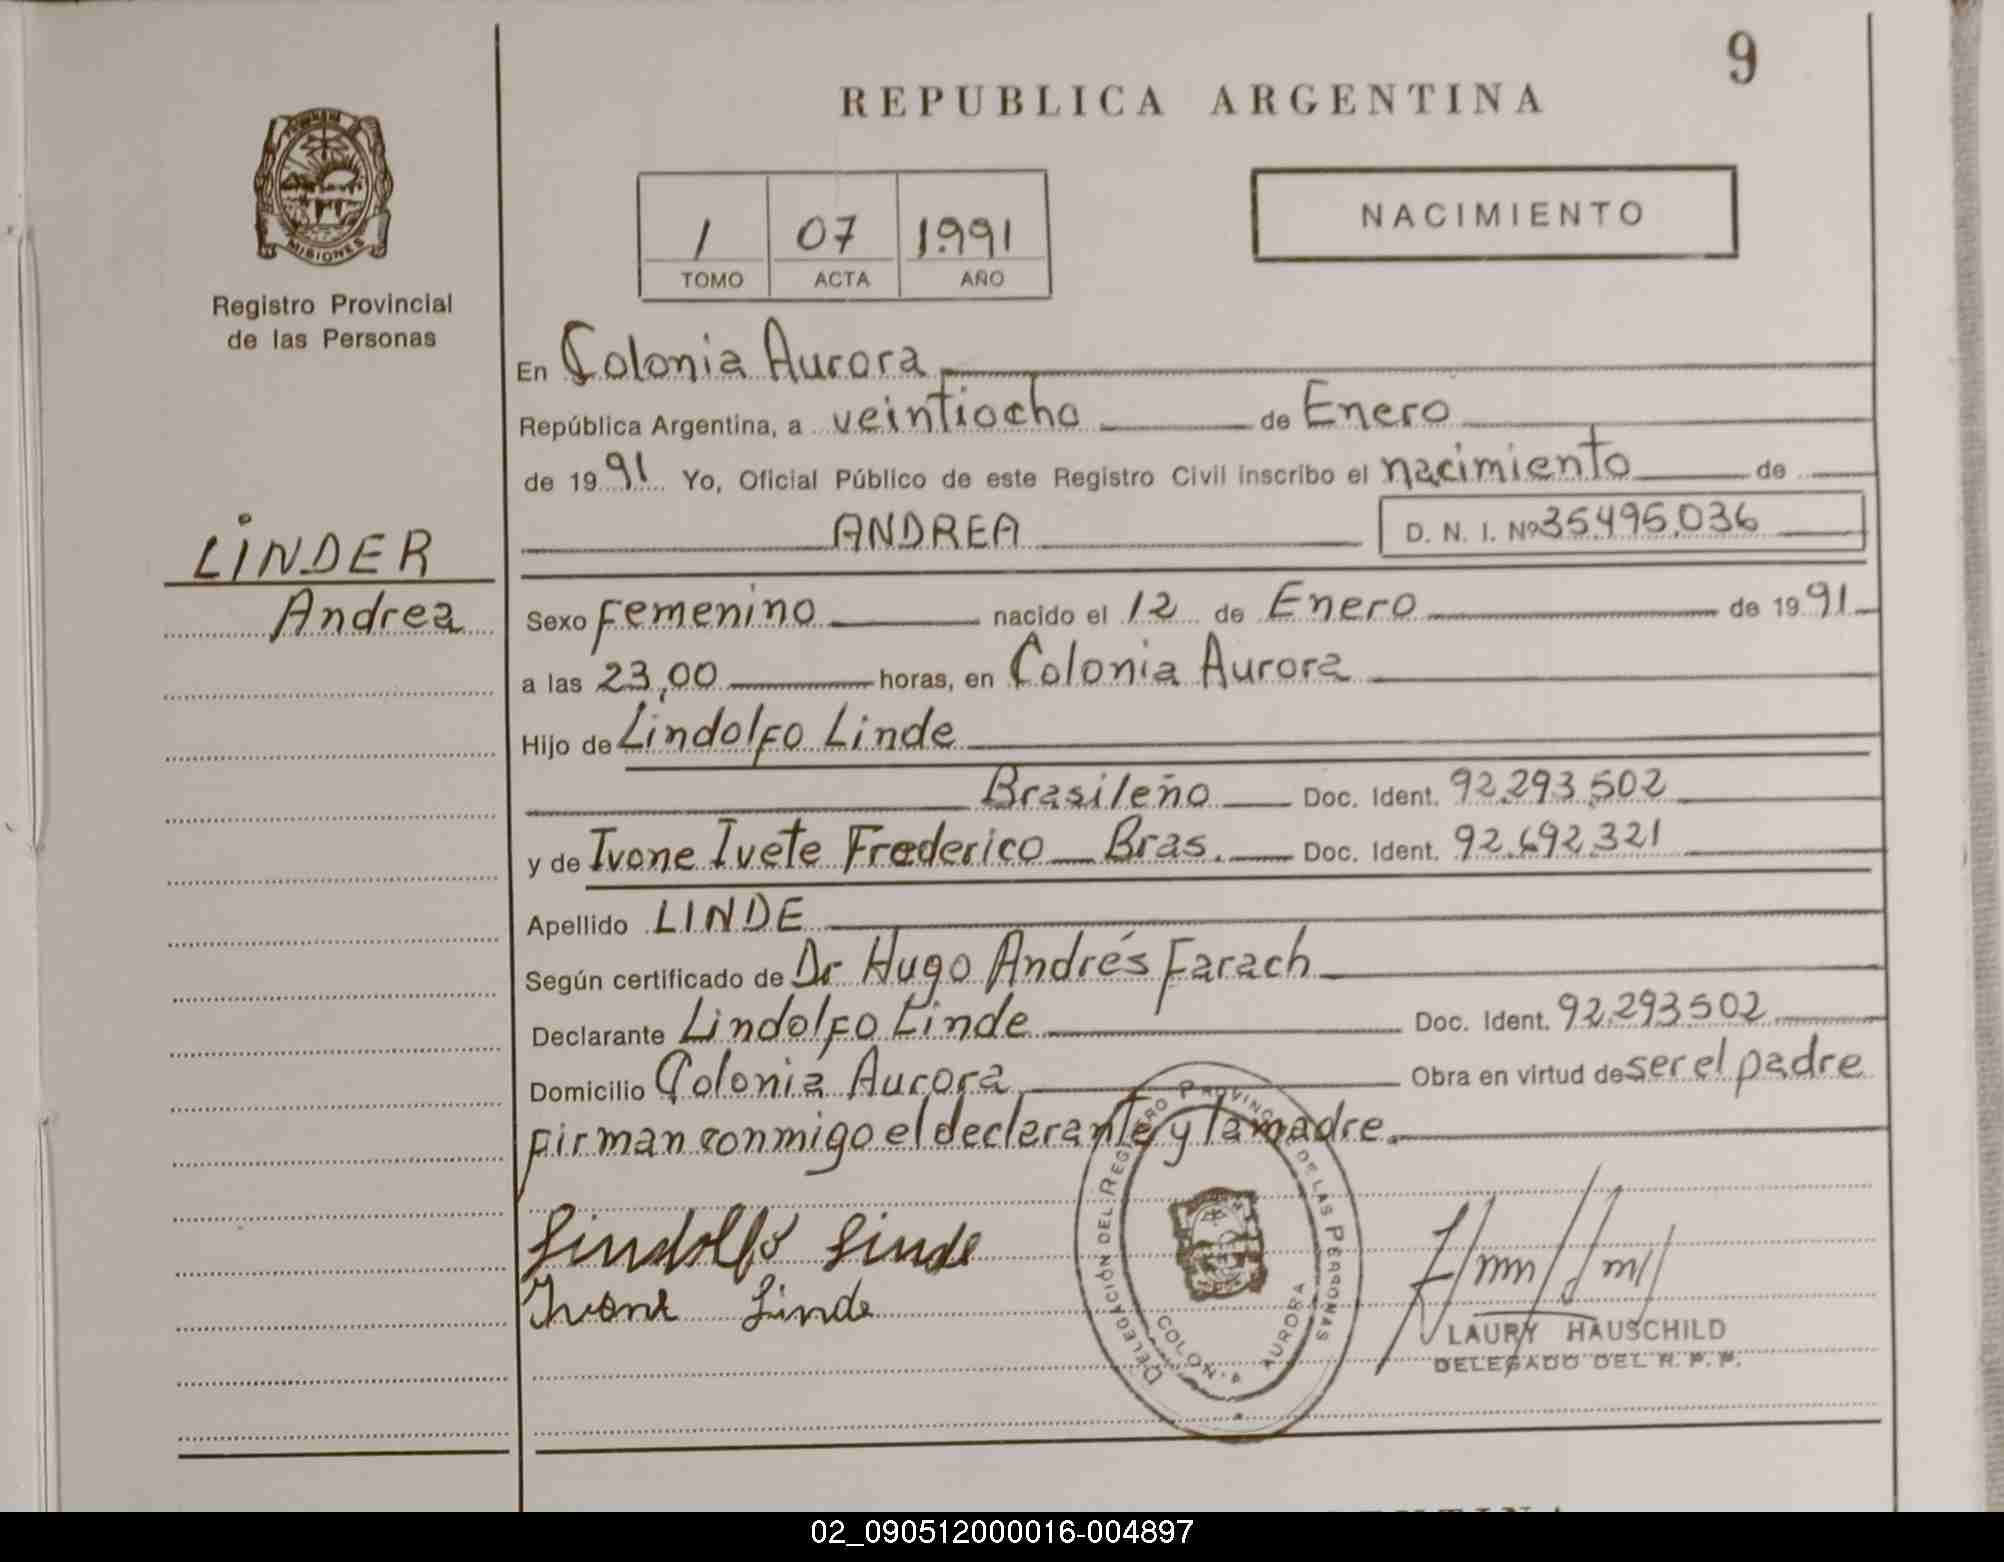 9
REPUBLICA ARGENTINA
MISIONES
Registro Provincial
de las Personas
1 07 1.991
TOMO ACTA AÑO
NACIMIENTO
En Colonia Aurora
República Argentina, a veintiocho de Enero
de 1991 Yo, Oficial Público de este Registro Civil inscribo el nacimiento de
ANDREA D. N. I. Nº 35.495.036
LINDER
Andrea
Sexo Femenino nacido el 12 de Enero de 1991
a las 23,00 horas, en Colonia Aurora
Hijo de Lindolfo Linde
Brasileño Doc. Ident. 92.293.502
y de Ivone Ivete Frederico Bras. Doc. Ident. 92.692.321
Apellido LINDE
Según certificado de Dr Hugo Andrés Farach
Declarante Lindolfo Linde Doc. Ident. 92.293.502
Domicilio Colonia Aurora Obra en virtud de ser el padre
firman conmigo el declarante y la madre.
Lindolfo Linde
Ivone Linde
DELEGACIÓN DEL REGISTRO PROVINCIAL DE LAS PERSONAS
COLONIA AURORA
LAURY HAUSCHILD
DELEGADO DEL R. P. P.
02_090512000016-004897